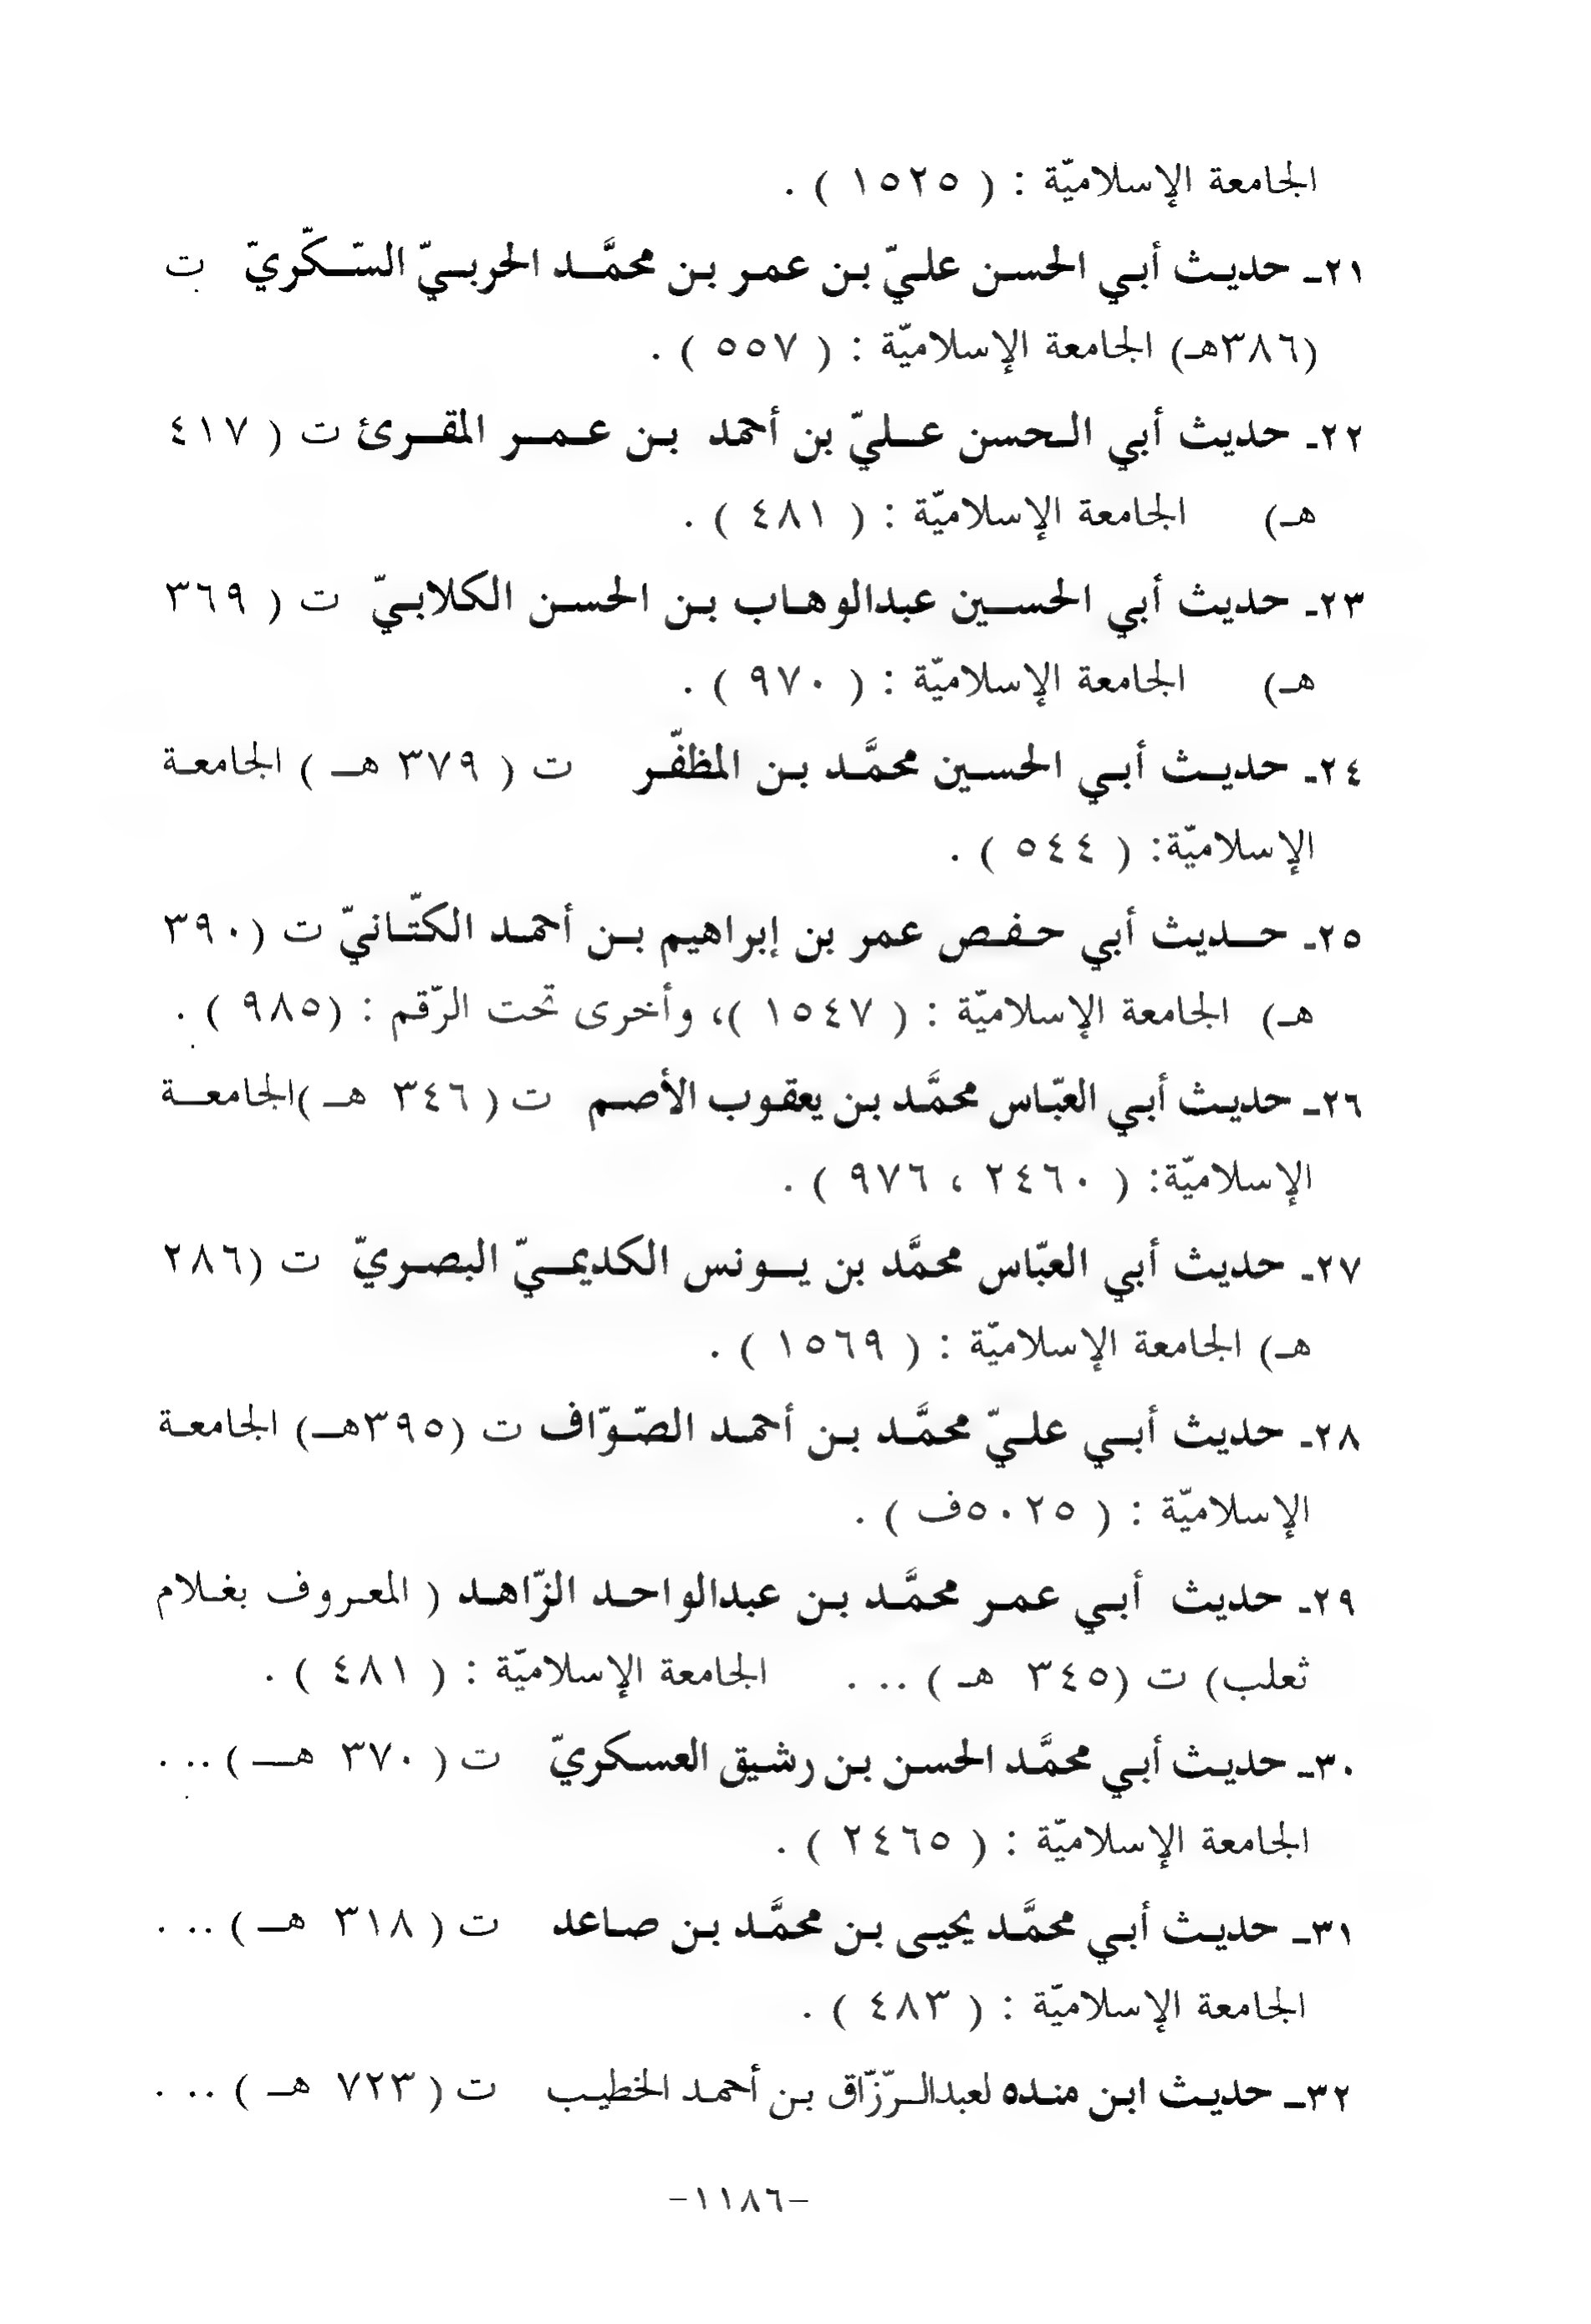 الجامعة الإسلاميّة : ( ١٥٢٥ ) .
٢١ـ حديث أبي الحسن عليّ بن عمر بن محمَّد الحربيّ السّكّريّ ت
(٣٨٦هـ) الجامعة الإسلاميّة : ( ٥٥٧ ) .
٢٢ـ حديث أبي الحسن عليّ بن أحمد بن عمر المقرئ ت ( ٤١٧
هـ) الجامعة الإسلاميّة : ( ٤٨١ ) .
٢٣ـ حديث أبي الحسين عبدالوهاب بن الحسن الكلابيّ ت ( ٣٦٩
هـ) الجامعة الإسلاميّة : ( ٩٧٠ ) .
٢٤ـ حديث أبي الحسين محمَّد بن المظفّر ت ( ٣٧٩ هـ ) الجامعة
الإسلاميّة: ( ٥٤٤ ) .
٢٥ـ حديث أبي حفص عمر بن إبراهيم بن أحمد الكتّانيّ ت (٣٩٠
هـ) الجامعة الإسلاميّة : ( ١٥٤٧ )، وأخرى تحت الرّقم : (٩٨٥ ) .
٢٦ـ حديث أبي العبّاس محمَّد بن يعقوب الأصم ت ( ٣٤٦ هـ )الجامعة
الإسلاميّة: ( ٢٤٦٠ ، ٩٧٦ ) .
٢٧ـ حديث أبي العبّاس محمَّد بن يونس الكديميّ البصريّ ت (٢٨٦
هـ) الجامعة الإسلاميّة : ( ١٥٦٩ ) .
٢٨ـ حديث أبي عليّ محمَّد بن أحمد الصّوّاف ت (٣٩٥هـ) الجامعة
الإسلاميّة : ( ٥٠٢٥ف ) .
٢٩ـ حديث أبي عمر محمَّد بن عبدالواحد الزّاهد ( المعروف بغلام
ثعلب) ت (٣٤٥ هـ ) .. . الجامعة الإسلاميّة : ( ٤٨١ ) .
٣٠ـ حديث أبي محمَّد الحسن بن رشيق العسكريّ ت ( ٣٧٠ هـ ) .. .
الجامعة الإسلاميّة : ( ٢٤٦٥ ) .
٣١ـ حديث أبي محمَّد يحيى بن محمَّد بن صاعد ت ( ٣١٨ هـ ) .. .
الجامعة الإسلاميّة : ( ٤٨٣ ) .
٣٢ـ حديث ابن منده لعبدالرّزّاق بن أحمد الخطيب ت ( ٧٢٣ هـ ) .. .
-١١٨٦-